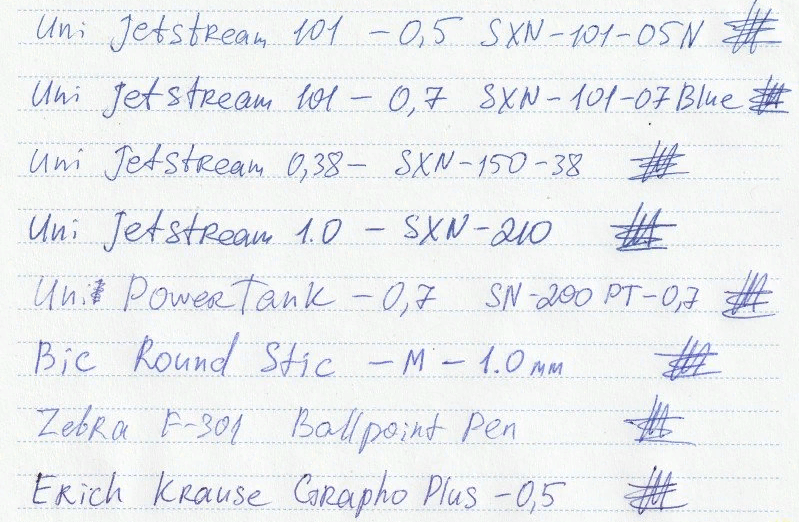 Uni Jetstream 101 - 0,5 SXN-101-05N
Uni Jetstream 101 - 0,7 SXN-101-07 Blue
Uni Jetstream 0,38- SXN-150-38
Uni Jetstream 1.0 - SXN-210
Uni PowerTank - 0,7 SN-200 PT-0,7
Bic Round Stic - M - 1.0 mm
Zebra F-301 Ballpoint Pen
Erich Krause Grapho Plus - 0,5